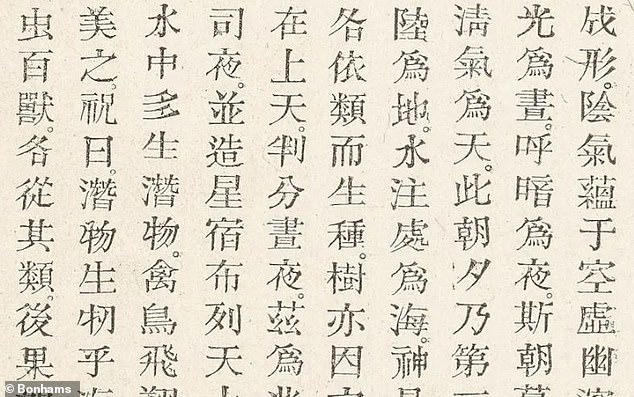 成形。陰氣蘊于空虛幽
光爲晝。呼暗爲夜。斯朝
清氣爲天。此朝夕乃第
陸爲地。水注處爲海。神
各依類而生種。樹亦因
在上天。判分晝夜。茲爲
司夜。並造星宿布列天
水中多生潛物。禽鳥飛
美之。祝曰。潛物生牣乎
虫百獸。各從其類。後果
Bonhams